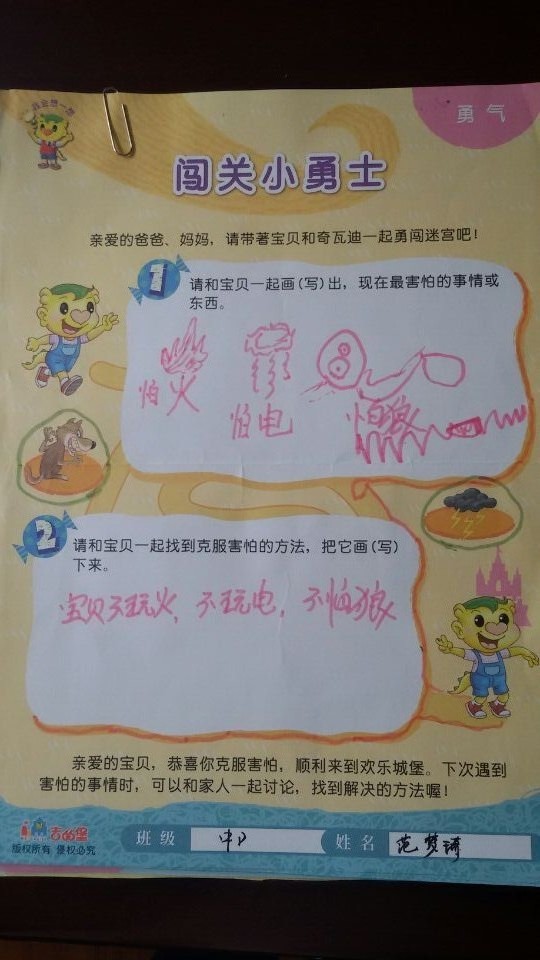 我会想一想
勇气
闯关小勇士
亲爱的爸爸、妈妈，请带著宝贝和奇瓦迪一起勇闯迷宫吧！
1
请和宝贝一起画(写)出，现在最害怕的事情或
东西。
怕火
怕电
怕狼
2
请和宝贝一起找到克服害怕的方法，把它画(写)
下来。
宝贝不玩火，不玩电，不怕狼
亲爱的宝贝，恭喜你克服害怕，顺利来到欢乐城堡。下次遇到
害怕的事情时，可以和家人一起讨论，找到解决的方法喔！
吉的堡
版权所有 侵权必究
班级
姓名 范梦